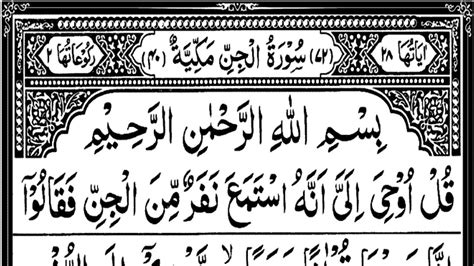 اٰیَاتُهَا ۲۸ (۷۲) سُوْرَةُ الْجِنِّ مَكِّيَّةٌ (۴۰) رُكُوْعَاتُهَا ۲
بِسْمِ اللهِ الرَّحْمٰنِ الرَّحِيْمِ
قُلْ اُوْحِيَ اِلَيَّ اَنَّهُ اسْتَمَعَ نَفَرٌ مِّنَ الْجِنِّ فَقَالُوْٓا